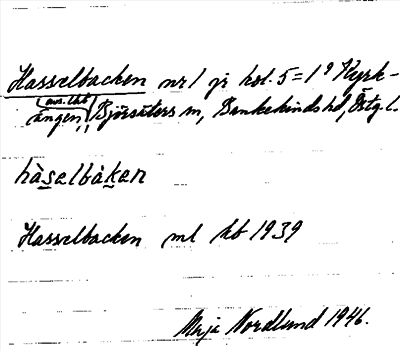 Hasselbacken nr 1 på hsl. 5=1⁹ Kyrk-
avs. lht
ängen,, Björsäters sn, Bankekinds hd, Östg. l.
hàsalbàkan
Hasselbacken ml kb 1939
Maja Nordlund 1946.